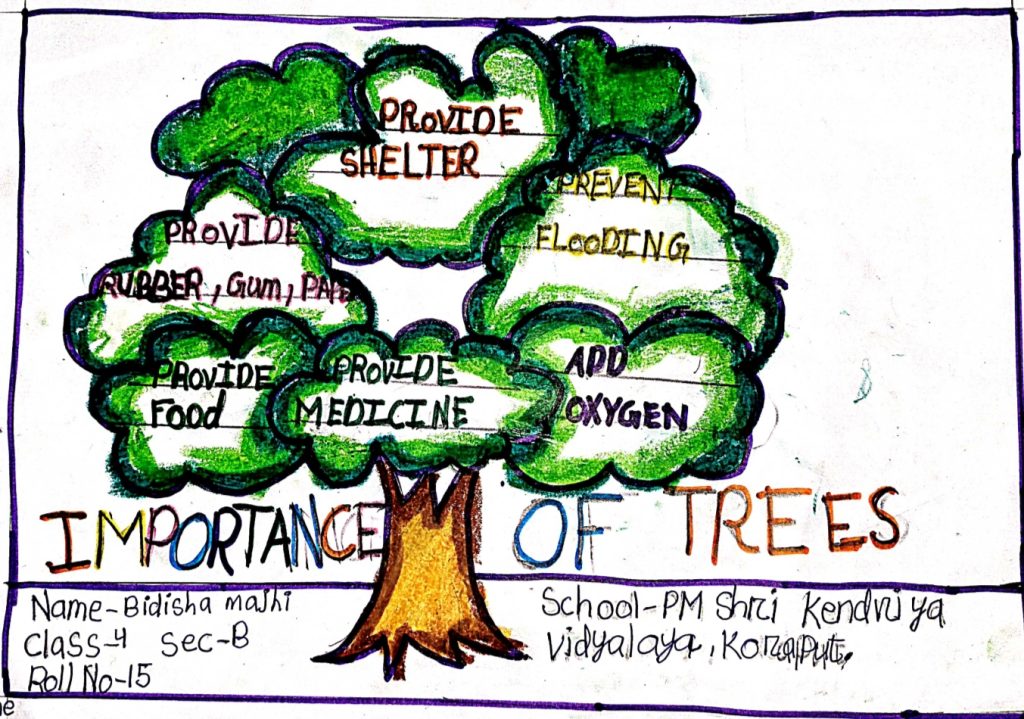 PROVIDE
SHELTER
PREVENT
FLOODING
PROVIDE
RUBBER, Gum, PAPE
PROVIDE
Food
PROVIDE
MEDICINE
ADD
OXYGEN
IMPORTANCE OF TREES
Name-Bidisha majhi
Class-4 Sec-B
Roll No-15
School-PM Shri Kendriya
Vidyalaya, Koraput.